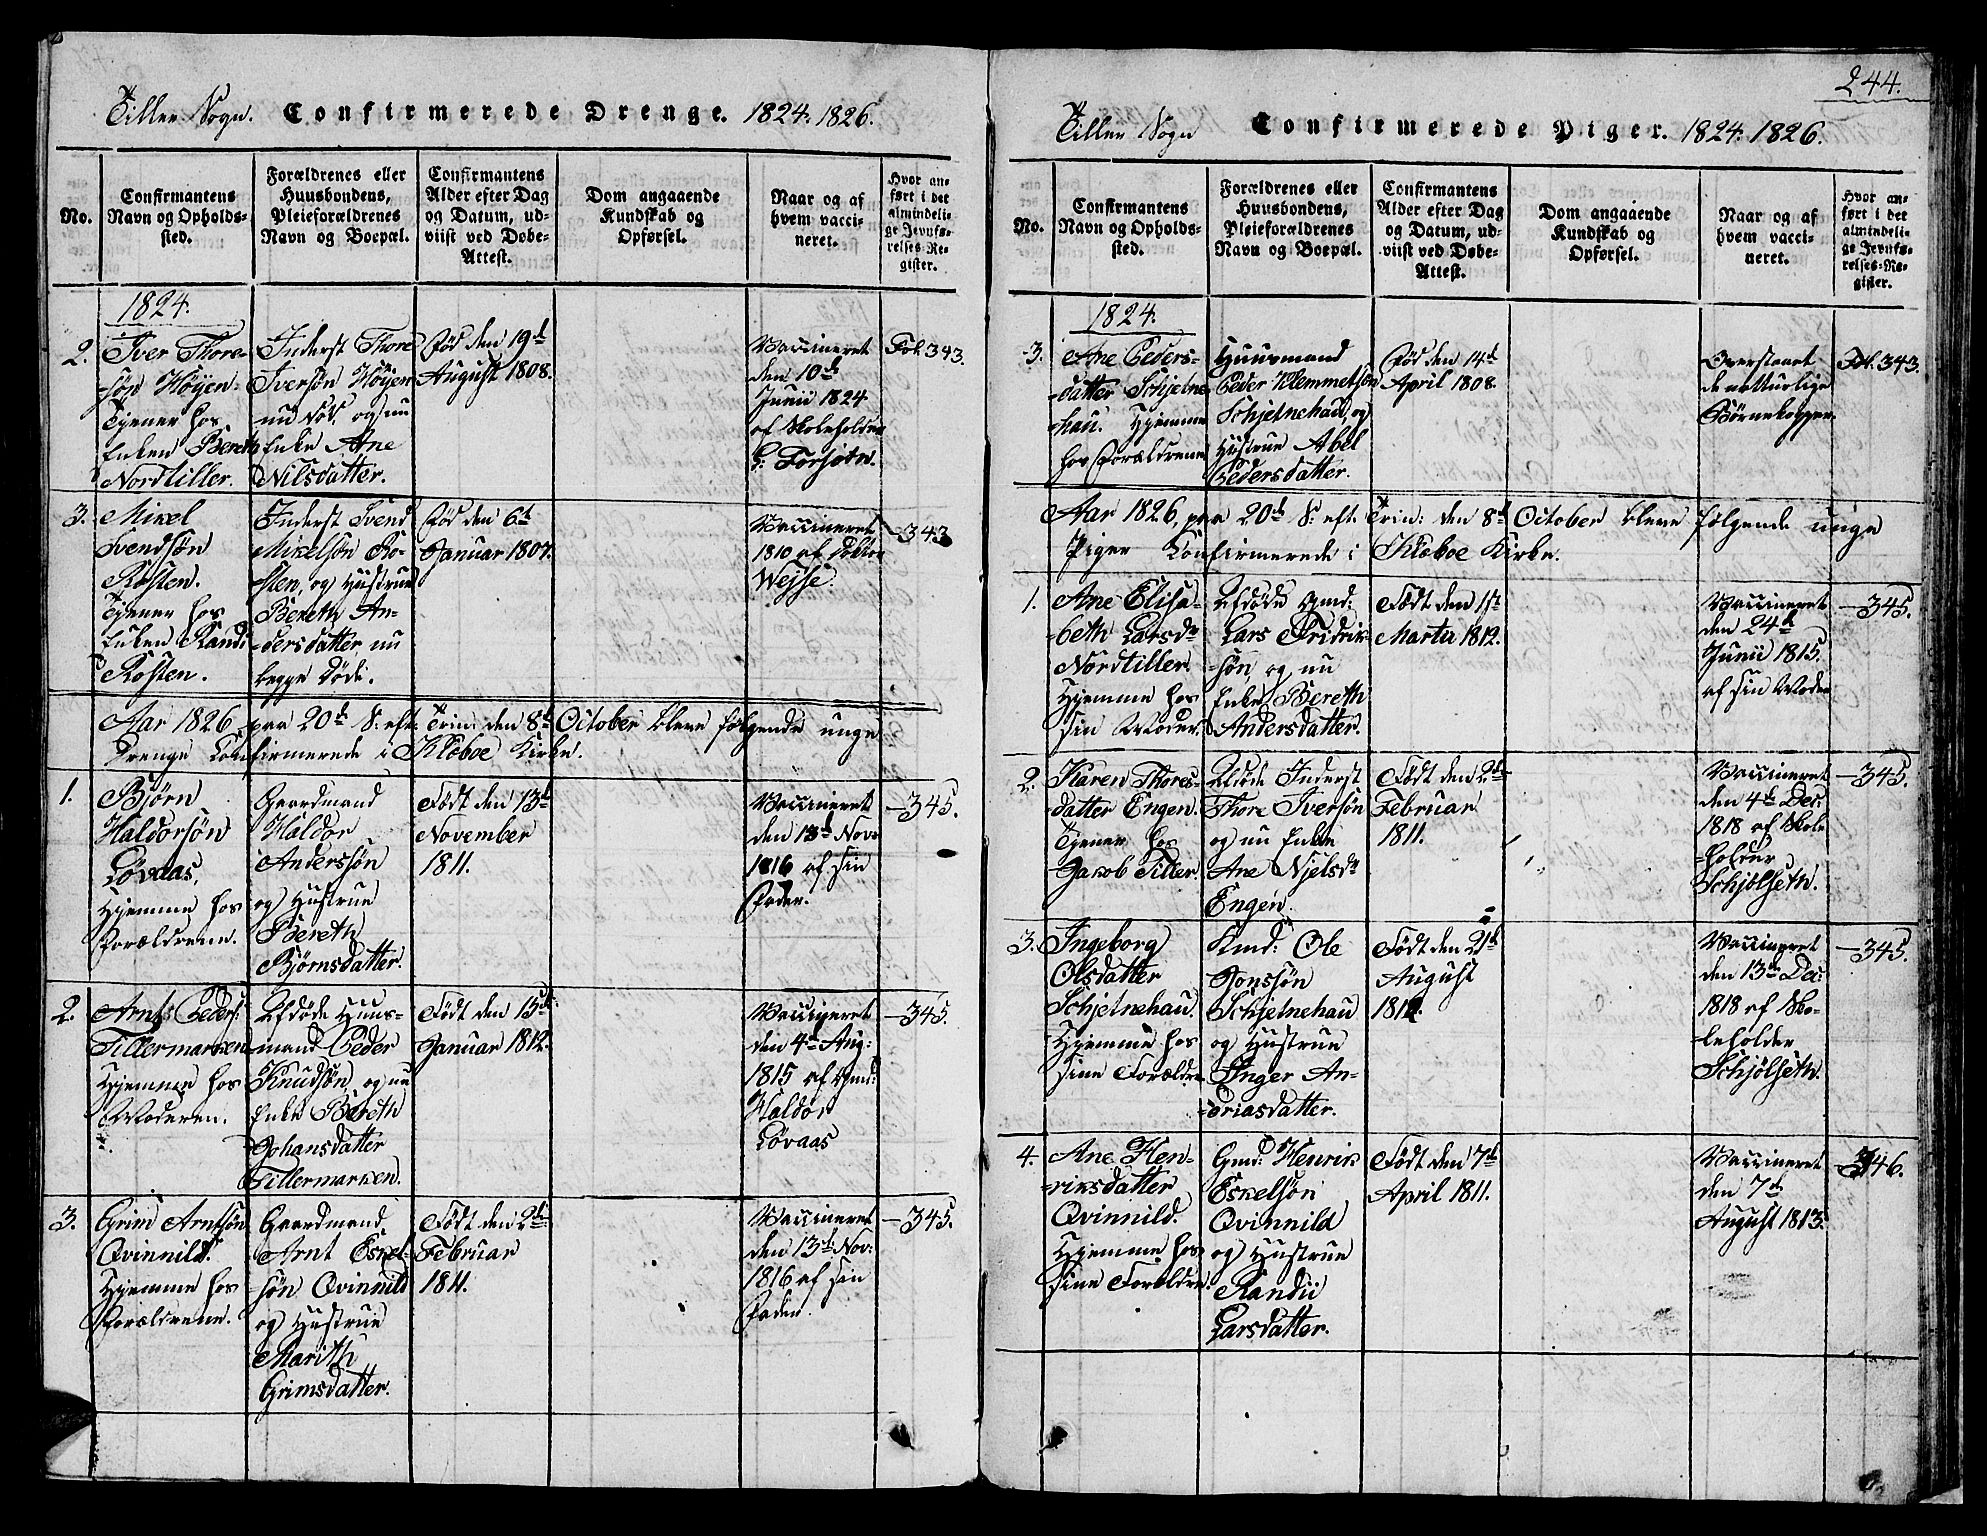 Tiller Sogn. Confirmerede Drenge. 1824. 1826.
No.
Confirmantens
Navn og Opholds-
sted.
Forældrenes eller
Huusbondens,
Pleieforældrenes
Navn og Boepæl.
Confirmantens
Alder efter Dag
og Datum, ud-
viist ved Døbe-
Attest.
Dom angaaende
Kundskab og
Opførsel.
Naar og af
hvem vacci-
neret.
Hvor an-
ført i det
almindeli-
ge Jevnfø-
relses-Re-
gister.
1824.
2.
Iver Thore-
søn Höyen
Tjener hos
Enken Bereth
Nordtiller.
Inderst Thore
Iversøn Höyen
nu död, og nu
Enke Ane
Nilsdatter.
Fød den 19de
August 1808.
Vaccineret
den 10de
Junii 1824
af Skoleholder
Forsøtn.
Fol. 343
3.
Mikel
Svendsøn
Rosten.
Tjener hos
Enken Randi
Rosten.
Inderst Svend
Mikelsön Ro-
sten, og Hustrue
Bereth An-
dersdatter nu
begge döde.
Fød den 6te
Januar 1807.
Vaccineret
1810 af Doktor
Wejse.
— 343
Aar 1826, paa 20de S: eft: Trin: den 8de October bleve følgende unge
Drenge Confirmerede i Klæboe Kirke.
1.
Bjørn
Haldorsön
Lövaas,
Hjemme hos
Forældrene.
Gaardmand
Haldor
Anderssön
og Hustrue
Bereth
Björnsdatter.
Födt den 13de
November
1811.
Vaccineret
den 13de Nov:
1816 af sin
Fader.
— 345.
2.
Arnt Peders:
Tillermarken
Hjemme hos
Moderen.
Afdöde Huus-
mand Peder
Knudsön, og nu
Enke Bereth
Johansdatter
Tillermarken.
Födt den 15de
Januar 1812.
Vaccineret
den 4de Aug:
1815 af Gmd:
Haldor
Lövaas
— 345.
3.
Grim Arntsön
Qvinnild.
Hjemme hos
Forældrene.
Gaardmand
Arnt Eskel-
sön Qvinnild
og Hustrue
Marith
Grimsdatter.
Födt den 2den
Februar
1811.
Vaccineret
den 13de Nov:
1816 af sin
Fader.
— 345.
244.
Tiller Sogn Confirmerede Piger. 1824. 1826.
No.
Confirmantens
Navn og Opholds-
sted.
Forældrenes eller
Huusbondens,
Pleieforældrenes
Navn og Boepæl.
Confirmantens
Alder efter Dag
og Datum, ud-
viist ved Døbe-
Attest.
Dom angaaende
Kundskab og
Opførsel.
Naar og af
hvem vacci-
neret.
Hvor an-
ført i det
almindeli-
ge Jevnfø-
relses-Re-
gister.
1824.
3.
Ane Peders-
datter Schjetne-
hau. Hjemme
hos Forældrene
Huusmand
Peder Klemmetsen
Schjetnehau, og
Hustrue Abel
Pedersdatter.
Fød den 14de
April 1808.
Overstaaet
de naturlige
Börnekopper
Fol. 343.
Aar 1826, paa 20de S: eft: Trin: den 8de October bleve følgende unge
Piger Confirmerede i Klæboe Kirke.
1.
Ane Elisa-
beth Larsdr
Nordtiller.
Hjemme hos
sin Moder.
Afdöde Gmd:
Lars Fridrik-
sön, og nu
Enke Bereth
Andersdatter.
Födt den 1ste
Martii 1812.
Vaccineret
den 24de
Junii 1815.
af sin Moder
— 345.
2.
Karen Thores-
datter Engen.
Tjener hos
Jakob Tiller.
Afdöde Inderst
Thore Iversön
og nu Enke
Ane Njelsdr
Engen.
Födt den 2den
Februar
1811.
Vaccineret
den 4de Dec:
1818 af Skole-
holder
Schjölseth.
— 345.
3.
Ingeborg
Olsdatter
Schjetnehau.
Hjemme hos
sine Forældre
Hmd: Ole
Jonssön
Schjetnehau
og Hustrue
Inger An-
driasdatter.
Födt den 21de
August
Vaccineret
den 13de Dec:
1818 af Sko-
leholder
Schjölseth.
— 345.
4.
Ane Hen-
riksdatter
Qvinnild.
Hjemme hos
sine Forældre.
Gmd: Henrik
Eskelsön
Qvinnild
og Hustrue
Randii
Larsdatter.
Födt den 7de
April 1811.
Vaccineret
den 7de
August 1813.
346.